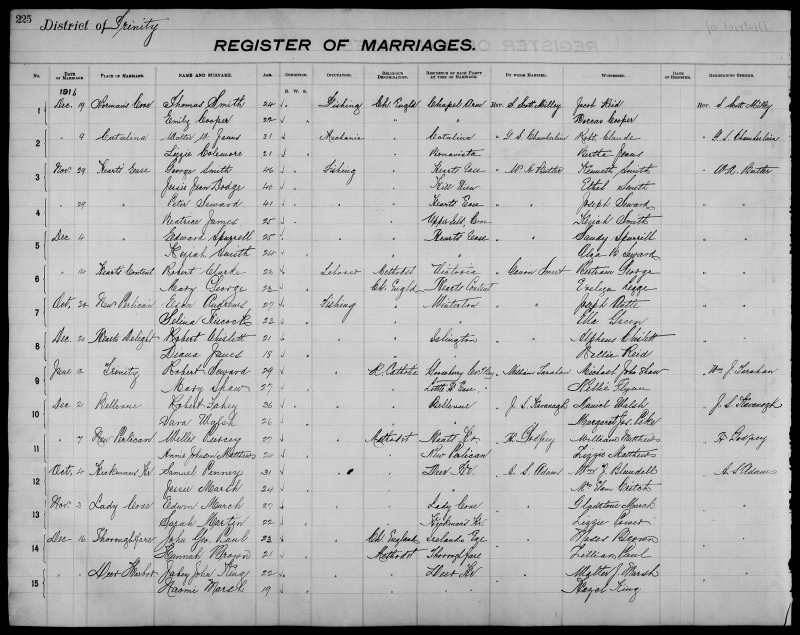 225
District of Trinity
REGISTER OF MARRIAGES.
No. DATE OF MARRIAGE PLACE OF MARRIAGE. NAME AND SURNAME. AGE. CONDITION. OCCUPATION. RELIGIOUS DENOMINATION. RESIDENCE OF EACH PARTY AT TIME OF MARRIAGE. BY WHOM MARRIED. WITNESSES. DATE OF REGISTRY. REGISTERING OFFICER.
1916 B. W. S.
1 Dec. 19 Norman's Cove Thomas Smith 24 Fishing Ch. Engld Chapel Arm Rev. S. Scott Milley Jacob Reid Rev. S. Scott Milley
Emily Cooper 22 " " Dorcas Cooper
2 " 9 Catalina Walter W. Jeans 21 Mechanic " Catalina " G. S. Chamberlain Robt. Cloude " G. S. Chamberlain
Lizzie Colemore 21 " Bonavista Bertha Jeans
3 Nov. 29 Heart's Ease George Smith 46 Fishing " Hearts Ease " W. R. Butler Kenneth Smith " W. R. Butler
Jessie Jean Dodge 40 " Hill View Ethel Smith
4 " 29 " Peter Seward 41 " " Hearts Ease " " Joseph Seward
Beatrice James 25 " Keziah Smith
5 Dec. 4 " Edward Spurrell 25 " " Hearts Ease " " Sandy Spurrell
Keziah Smith 24 " " Seward
6 " 14 Heart's Content Robert Clarke 26 Laborer Methodist Victoria " Canon Bertram George
Mary George 23 Ch. Engld Hearts Content Legge
7 Oct. 30 New Perlican Andrews 27 Fishing " Winterton " " Joseph
Selina Hiscock 22 " " Ella Green
8 Dec. 21 Heart's Delight Robert Chislett 21 " " Islington " " Alpheus Chislett
Diana James 18 " " Nellie Reid
9 June 12 Trinity Robert Seward 29 " R. Catholic " William Michael John Shaw " Wm J.
Mary Shaw 27 " Little H. Ease Nellie Flynn
10 Dec 2 Bellevue Robert Fahey 36 " " Bellevue " J. S. Kavanagh Daniel Walsh " J. S. Kavanagh
Sara Walsh 26 " " Margaret Jos. Peke
11 " 7 New Perlican Willis Piercey 27 " Methodist Hearts " H. Godfrey William Matthews " H Godfrey
Annie Johnson Matthews 24 " New Perlican Lizzie Matthews
12 Oct. 4 Hickmans Hr Samuel Penney 31 " " Deer Hr. " A. S. Adams Wm J. Blundell " A. S Adams
Jessie Marsh 24 " "
13 Nov. 3 Lady Cove Edwin March 27 " " Lady Cove " " Gladstone March
Sarah Martin 22 " Hickman's Hr. Lizzie
14 Dec. 16 Thoroughfare John Geo. Paul 23 " Ch. England Irelands Eye " " Moses Brown
Hannah Brown 21 Methodist Thoroughfare Lillian Paul
15 " " Deer Harbor John King 22 " " Deer Hr " " Walter J. Marsh
Naomi Marsh 19 " " Hazel King